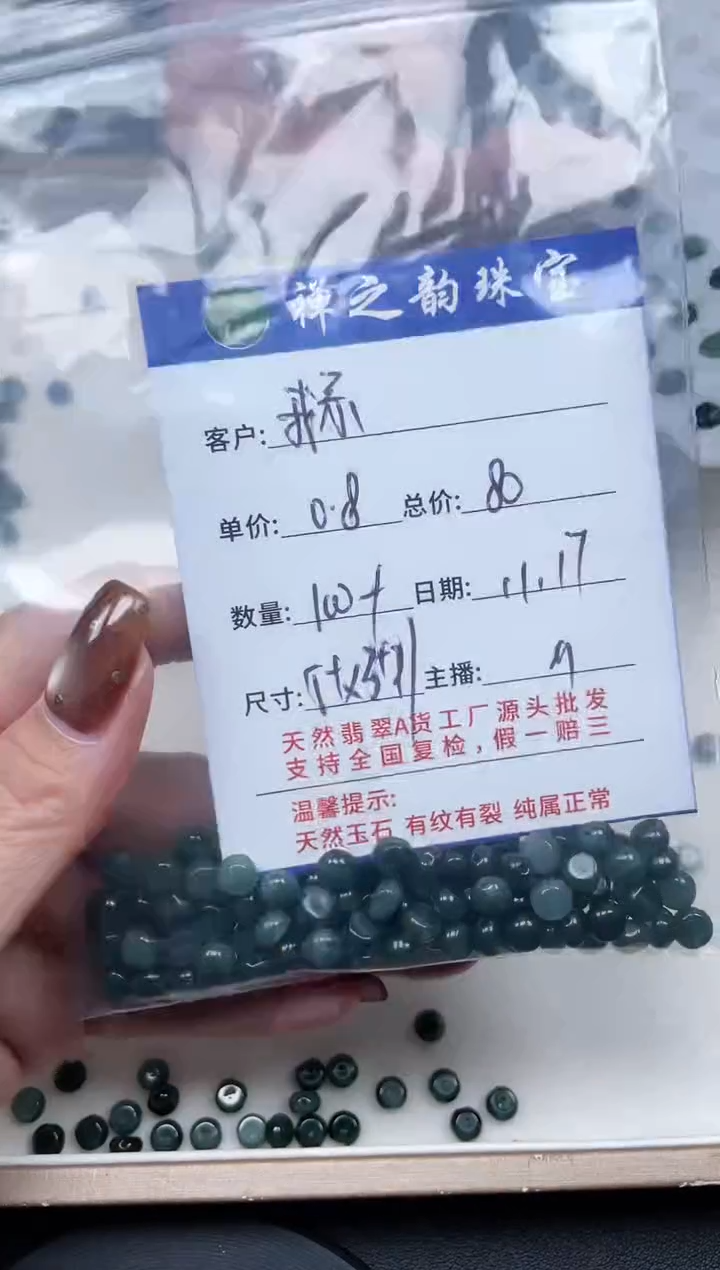 禅之韵珠宝
客户:
单价: 0.8 总价: 80
数量: 100个 日期: 11.17
尺寸: 主播:
天然翡翠A货工厂源头批发
支持全国复检,假一赔三
温馨提示:
天然玉石 有纹有裂 纯属正常